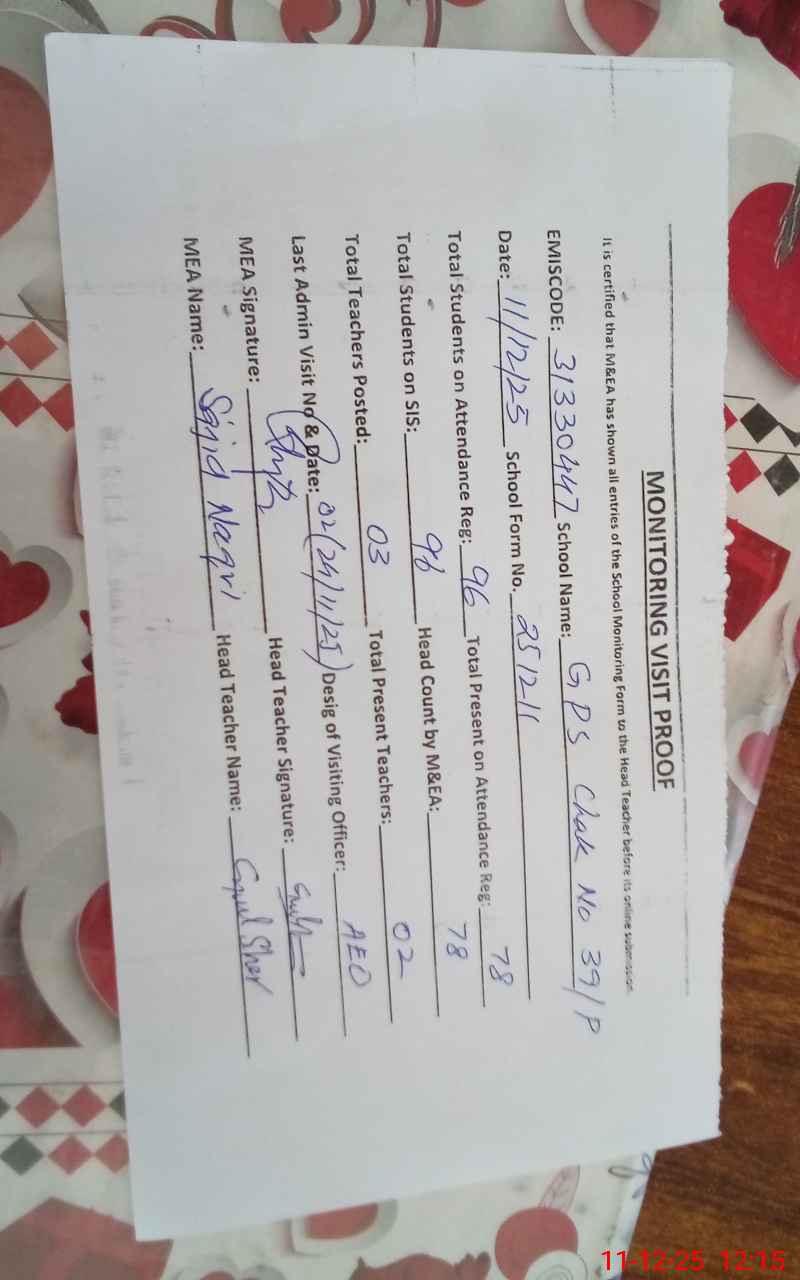 MONITORING VISIT PROOF
It is certified that M&EA has shown all entries of the School Monitoring Form to the Head Teacher before its online submission.
EMISCODE: 31330447 School Name: GPS Chak No 39/P
Date: 11/12/25 School Form No. 251211
Total Students on Attendance Reg: 96 Total Present on Attendance Reg: 78
Total Students on SIS: 96 Head Count by M&EA: 78
Total Teachers Posted: 03 Total Present Teachers: 02
Last Admin Visit No & Date: 02(24/11/25) Desig of Visiting Officer: AEO
MEA Signature: Head Teacher Signature:
MEA Name: Sajid Naqvi Head Teacher Name: Sher
11-12-25 12:15